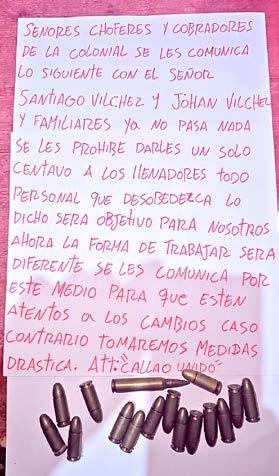 SEÑORES CHOFERES Y COBRADORES
DE LA COLONIAL SE LES COMUNICA
LO SIGUIENTE CON EL SEÑOR
SANTIAGO VILCHEZ Y JOHAN VILCHEZ
Y FAMILIARES YA NO PASA NADA
SE LES PROHIBE DARLES UN SOLO
CENTAVO A LOS LLENADORES TODO
PERSONAL QUE DESOBEDEZCA LO
DICHO SERA OBJETIVO PARA NOSOTROS
AHORA LA FORMA DE TRABAJAR SERA
DIFERENTE SE LES COMUNICA POR
ESTE MEDIO PARA QUE ESTEN
ATENTOS A LOS CAMBIOS CASO
CONTRARIO TOMAREMOS MEDIDAS
DRASTICA. ATT: "CALLAO UNIDO"